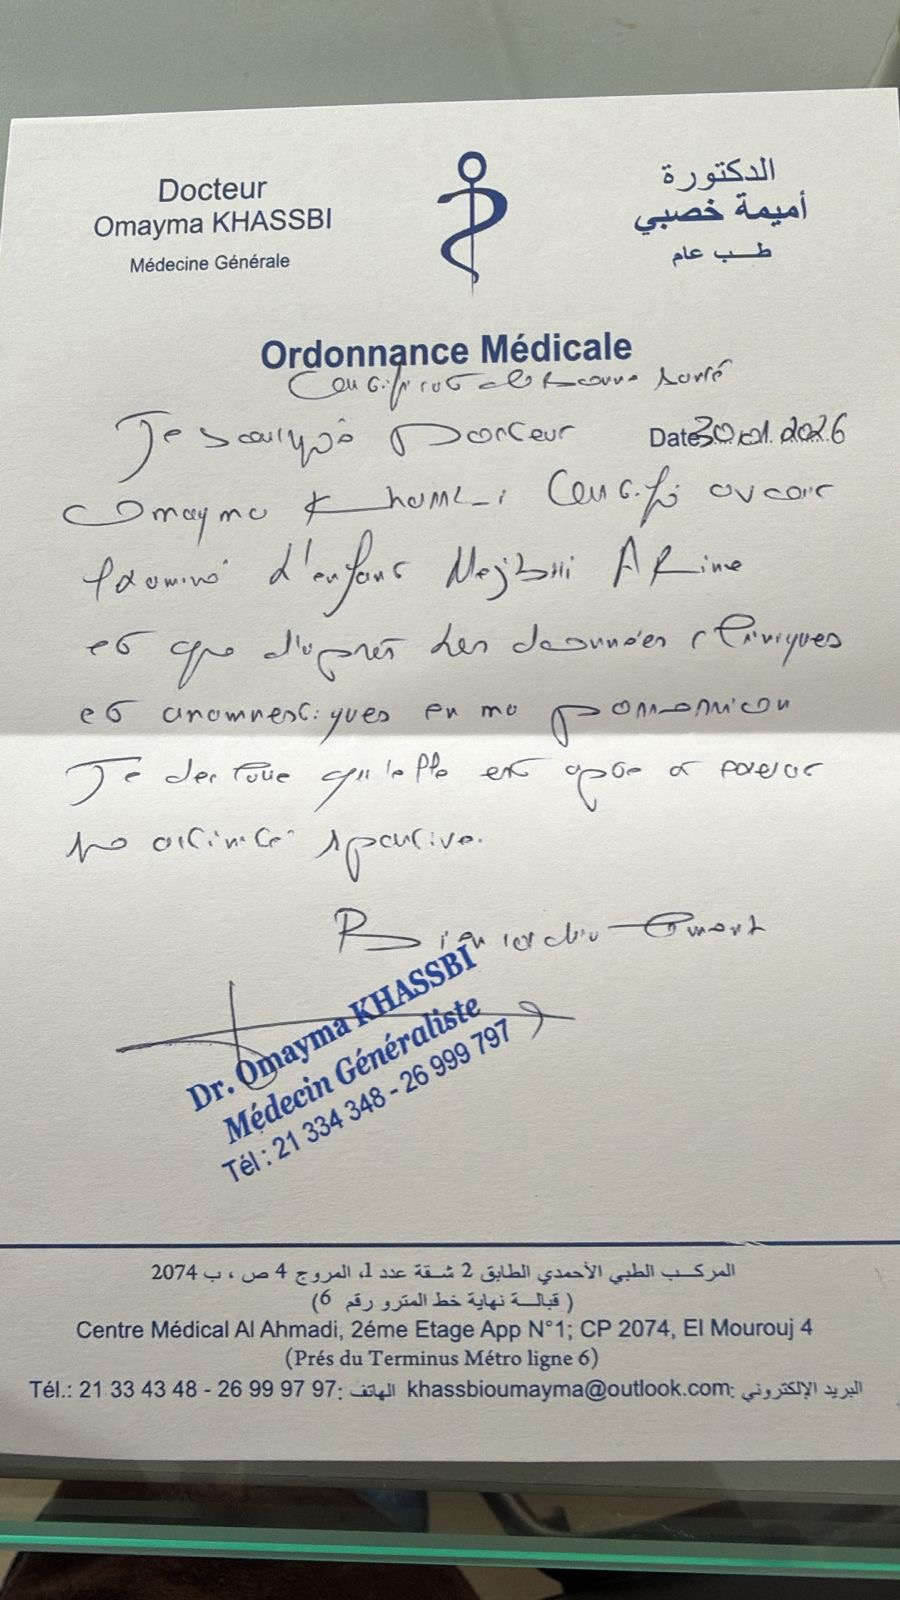 Docteur
Omayma KHASSBI
Médecine Générale
الدكتورة
أميمة خصبي
طب عام
Ordonnance Médicale
Certificat de bonne santé
Je soussigné Docteur
Date 30.01.2026
Omayma Certifie avoir
Examiné l'enfant Mejbri
et que d'après les données cliniques
et anamnestiques en ma possession
Je déclare qu'elle est apte à
activité sportive.
Dr. Omayma KHASSBI
Médecin Généraliste
Tél : 21 334 348 - 26 999 797
المركب الطبي الأحمدي الطابق 2 شقة عدد 1، المروج 4 ص ، ب 2074
( قبالة نهاية خط المترو رقم 6)
Centre Médical Al Ahmadi, 2éme Etage App N°1; CP 2074, El Mourouj 4
(Prés du Terminus Métro ligne 6)
Tél.: 21 33 43 48 - 26 99 97 97 :الهاتف khassbioumayma@outlook.com :البريد الإلكتروني